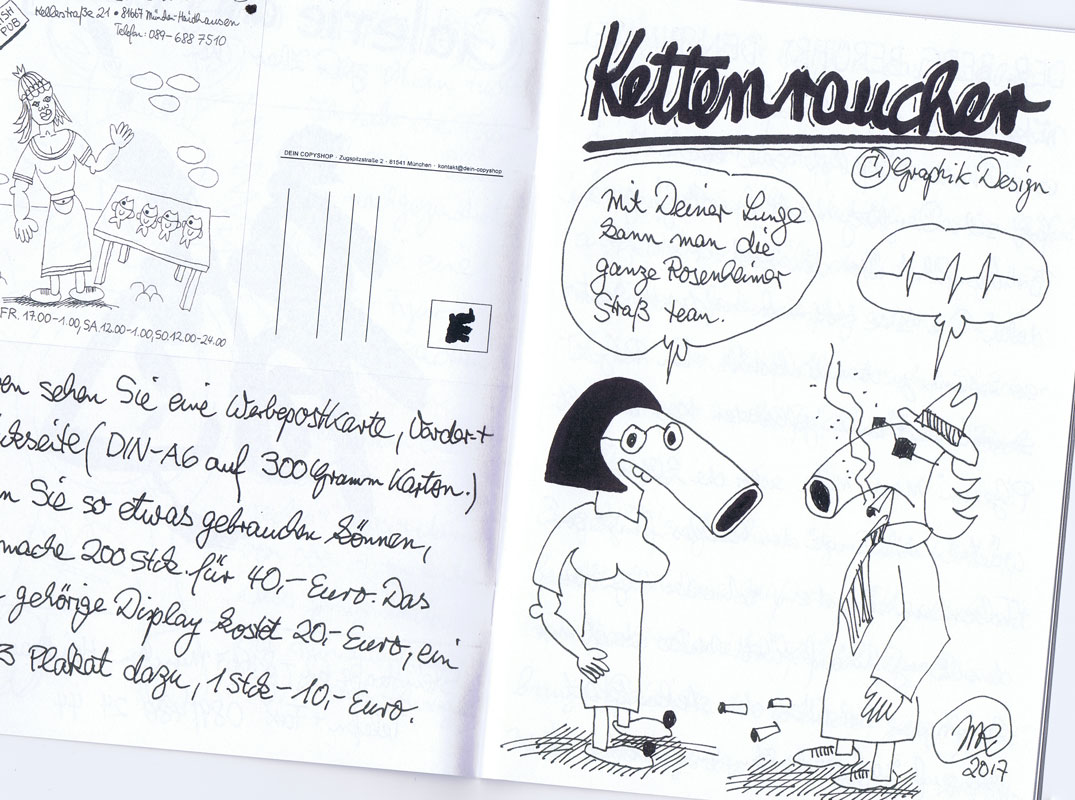 ISH
PUB
Kellerstraße 21 • 81667 München-Haidhausen
Telefon: 089-688 7510
FR. 17.00-1.00, SA. 12.00-1.00, SO. 12.00-24.00
DEIN COPYSHOP · Zugspitzstraße 2 · 81541 München · kontakt@dein-copyshop
en sehen Sie eine Werbepostkarte, Vorder-+
ckseite (DIN-A6 auf 300 Gramm Karton.)
n Sie so etwas gebrauchen können,
mache 200 Stck. für 40,- Euro. Das
gehörige Display kostet 20,- Euro, ein
3 Plakat dazu, 1 Stck - 10,- Euro.
Kettenraucher
© Graphik Design
Mit Deiner Lunge
kann man die
ganze Rosenheimer
Straß tean.
MR
2017